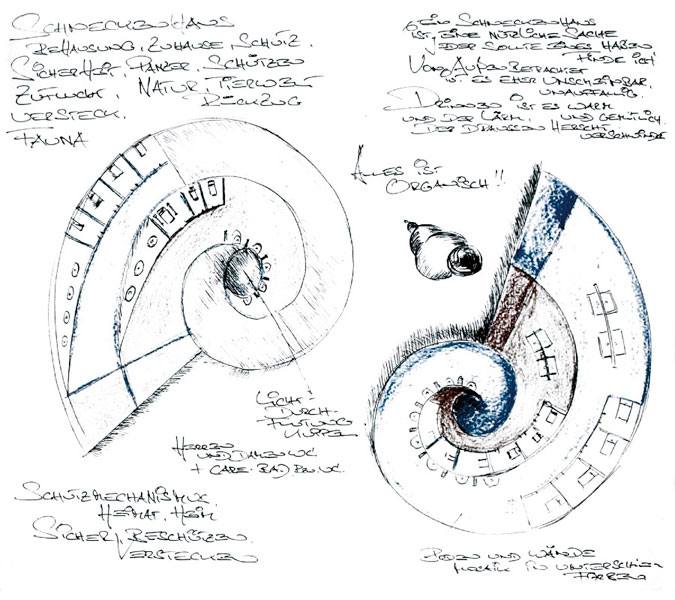 SCHNECKENHAUS
BEHAUSUNG, ZUHAUSE, SCHUTZ.
SICHERHEIT, PANZER, SCHÜTZEN
ZUFLUCHT, NATUR, TIERWELT
RÜCKZUG
VERSTECK.
FAUNA
EIN SCHNECKENHAUS
IST EINE NÜTZLICHE SACHE
JEDER SOLLTE EINES HABEN
FINDE ICH
VON AUẞEN BETRACHTET
IST ES EHER UNSCHEINBAR,
UNAUFFÄLLIG.
DRINNEN IST ES WARM
UND GEMÜTLICH.
UND DER LÄRM,
DER DRAUSSEN HERSCHT
VERSCHWINDET
ALLES IST
ORGANISCH!!
LICHT
DURCH-
FLUTUNG
KUPPEL
HERREN
UND DAMEN WC
+ CARE. BAD
SCHUTZMECHANISMUS
HEIMAT, HEIM
SICHER, BESCHÜTZEN
VERSTECKEN
BODEN UND WÄNDE
MOSAIK IN UNTERSCHIED
FARBEN